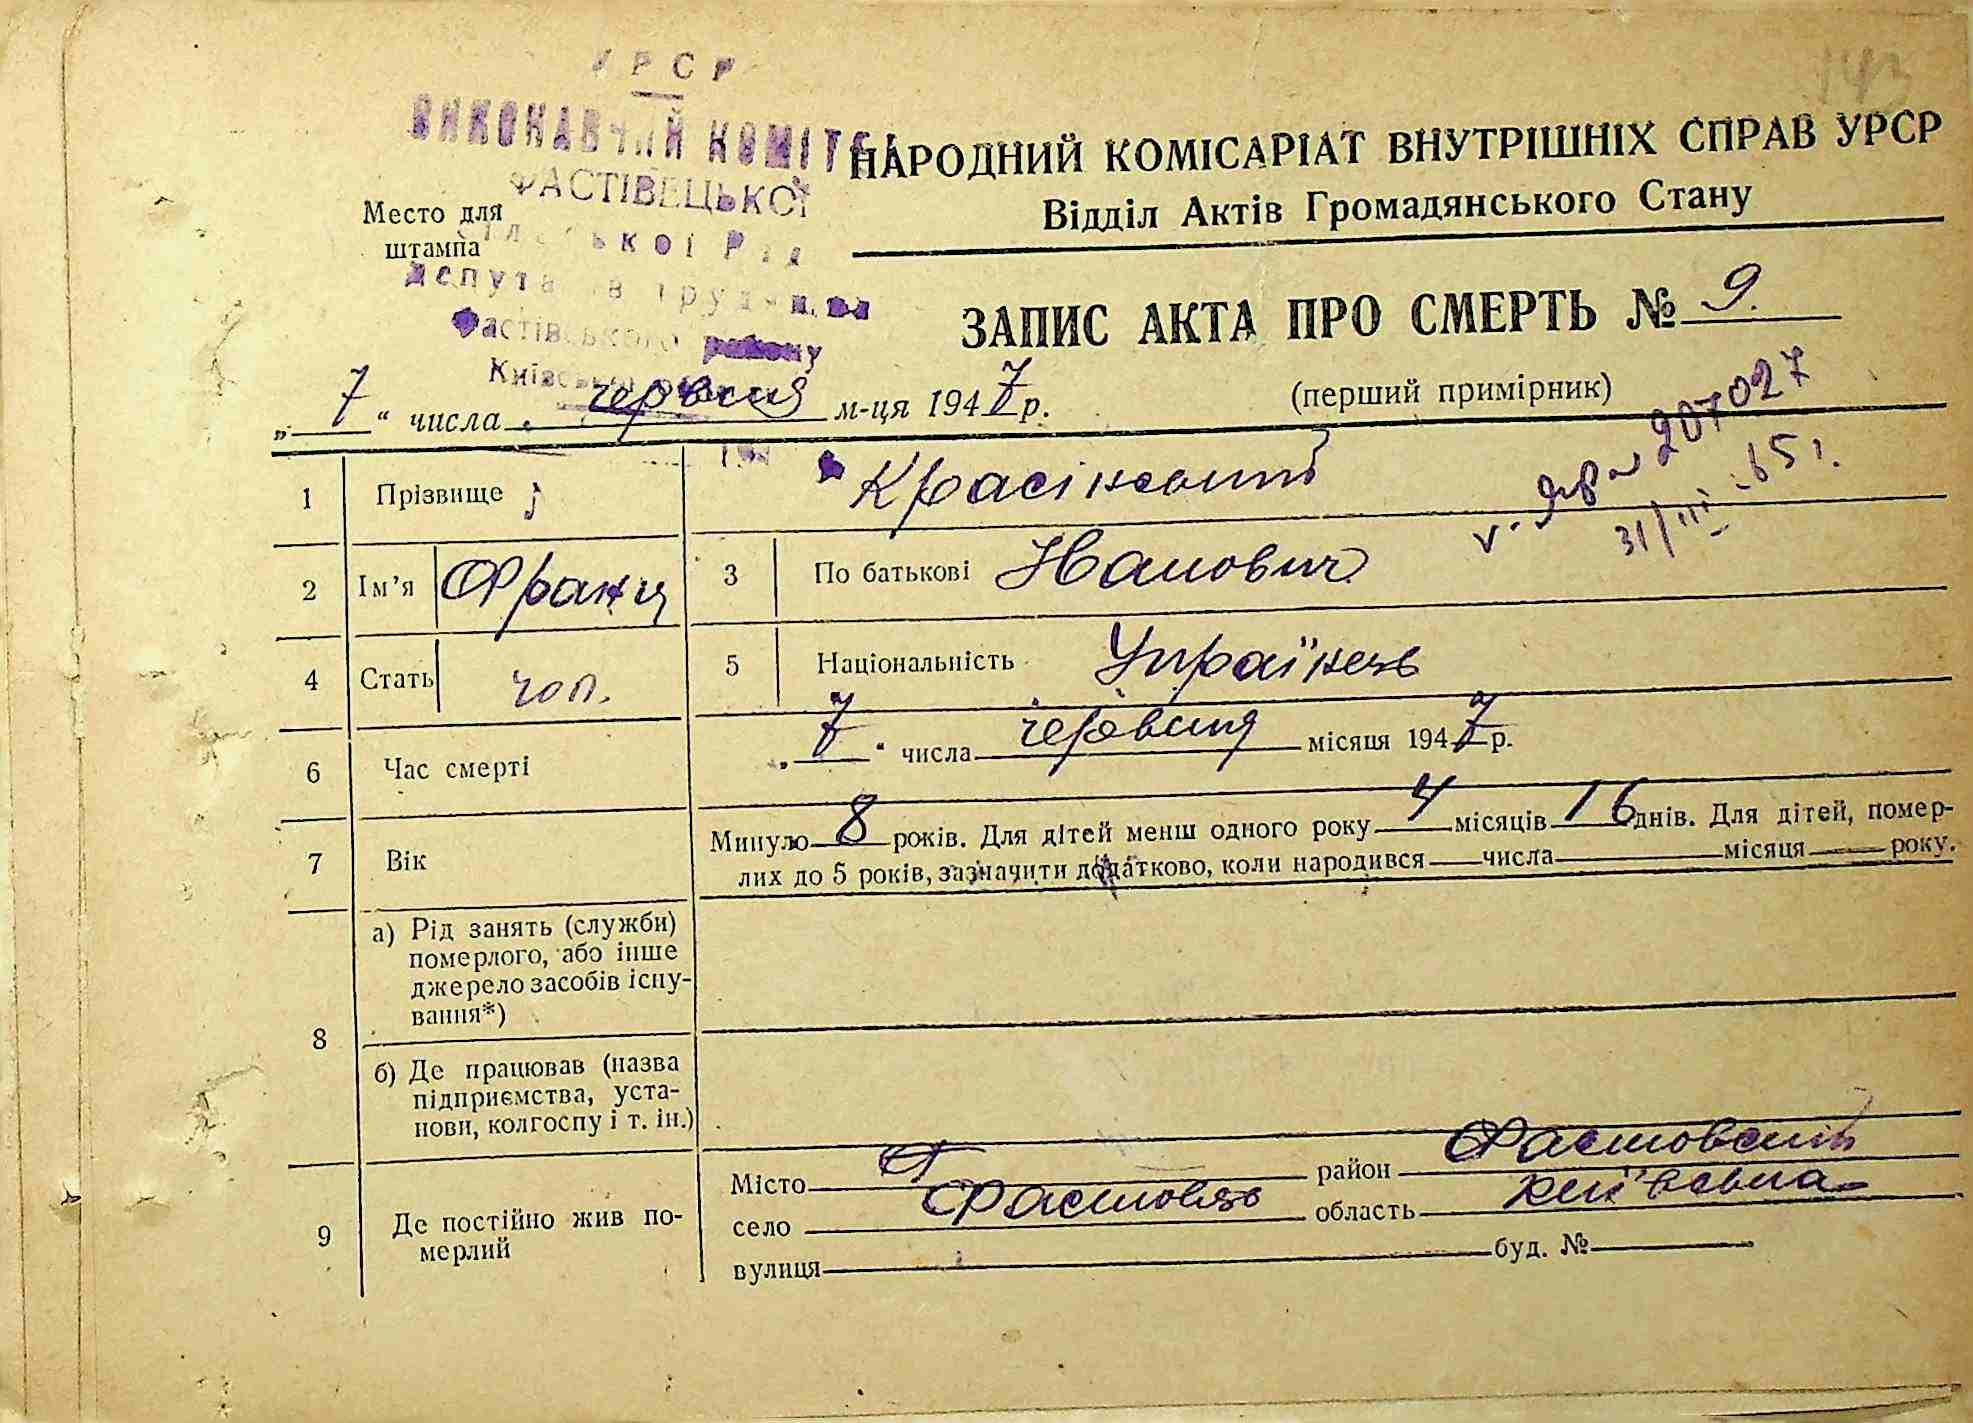 143
УРСР
ВИКОНАВЧИЙ КОМІТЕТ
ФАСТІВЕЦЬКОЇ
Місто для
штампа
сільської Рад
депутатів трудящих
Фастівського району
Київської
НАРОДНИЙ КОМІСАРІАТ ВНУТРІШНІХ СПРАВ УРСР
Відділ Актів Громадянського Стану
ЗАПИС АКТА ПРО СМЕРТЬ № 9.
(перший примірник)
„ 7 “ числа червня м-ця 1947 р.
207027
31/III-65 г.
1 Прізвище Красінский
2 Ім’я Франц 3 По батькові Иванович
4 Стать чол. 5 Національність Українець
6 Час смерті „ 7 “ числа червня місяця 1947 р.
7 Вік Минуло 8 років. Для дітей менш одного року 4 місяців 16 днів. Для дітей, помер-
лих до 5 років, зазначити додатково, коли народився числа місяця року.
8 а) Рід занять (служби)
померлого, або інше
джерело засобів існу-
вання*)
б) Де працював (назва
підприємства, уста-
нови, колгоспу і т. ін.)
9 Де постійно жив по-
мерлий
Місто район Фастовский
село Фастовець область Київська
вулиця буд. №